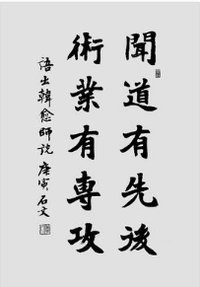 聞道有先後
術業有専攻
語出韓愈師説庚寅石文